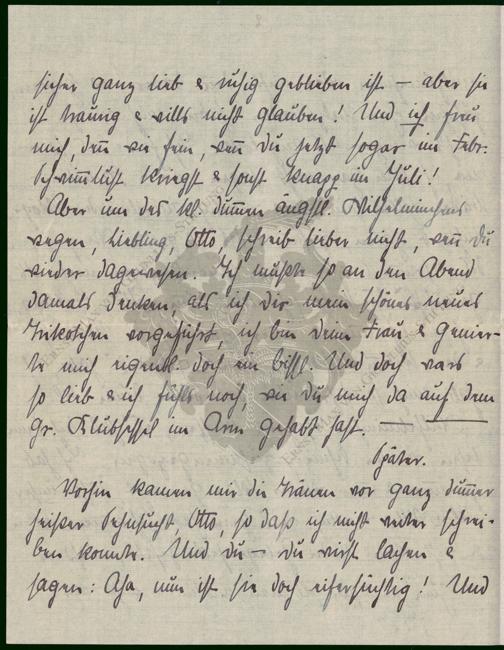 sicher ganz lieb & ruhig geblieben ist – aber sie
ist traurig & wills nicht glauben! Und ich freu
mich, deñ wie fein, weñ du jetzt sogar im Febr.
Schwimmlust kriegst & sonst knapp im Juli!
Aber um des kl. dum̃en ängstl. Wilhelminchens
wegen, Liebling, Otto, schreib lieber nicht, weñ du
wieder dagewesen. Ich mußte so an den Abend
damals denken, als ich dir mein schönes neues
Trikotchen vorgeführt, ich bin dein Frau & genier-
te mich eigentl. doch ein bissl. Und doch wars
so lieb & ich fühls noch wie du mich da auf dem
gr. Klubsessel im Arm gehabt hast.
Später.
Vorhin kamen mir die Tränen vor ganz dummer
heißer Sehnsucht, Otto, so daß ich nicht weiter schrei-
ben konnte. Und du – du wirst lachen &
sagen: Aha, nun ist sie doch eifersüchtig! Und